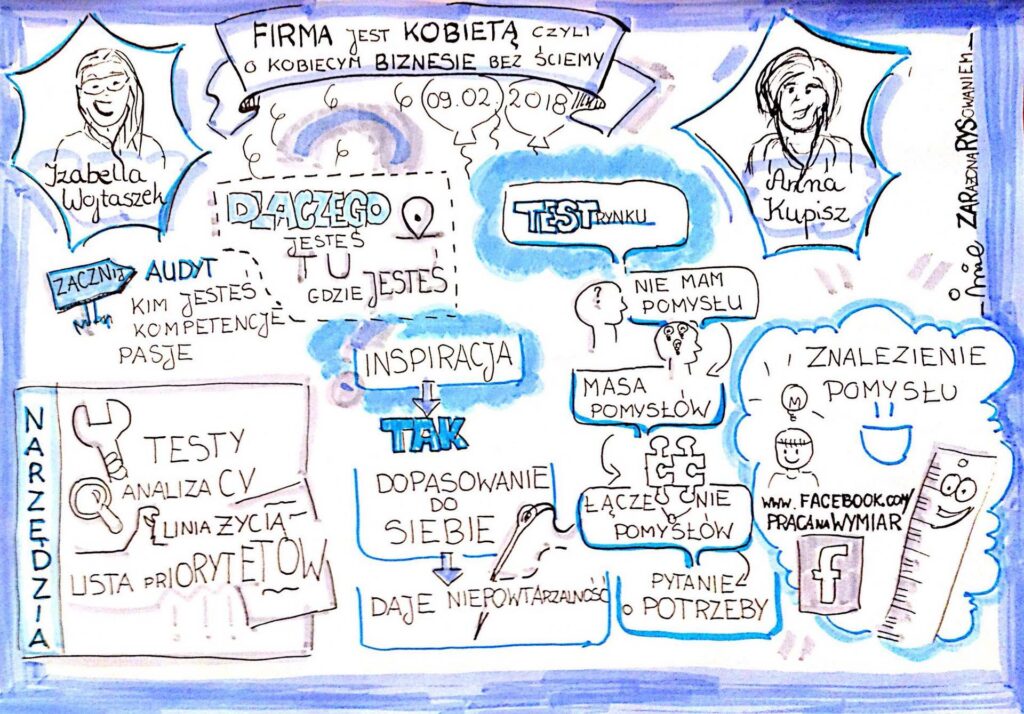 FIRMA JEST KOBIETĄ CZYLI
O KOBIECYM BIZNESIE BEZ ŚCIEMY
09.02. 2018
Izabella
Wojtaszek
Anna
Kupisz
ZARAŻONARYSOWANIEM
DLACZEGO
JESTEŚ
TU
GDZIE JESTEŚ
ZACZNIJ
AUDYT
KIM JESTEŚ
KOMPETENCJE
PASJE
NARZĘDZIA
TESTY
ANALIZA CV
LINIA ŻYCIA
LISTA PRIORYTETÓW
!!!
INSPIRACJA
TAK
DOPASOWANIE
DO
SIEBIE
DAJE NIEPOWTARZALNOŚĆ
TEST RYNKU
?
NIE MAM
POMYSŁU
MASA
POMYSŁÓW
ŁĄCZENIE
POMYSŁÓW
PYTANIE
O POTRZEBY
ZNALEZIENIE
POMYSŁU
WWW.FACEBOOK.COM/
PRACANAWYMIAR
f